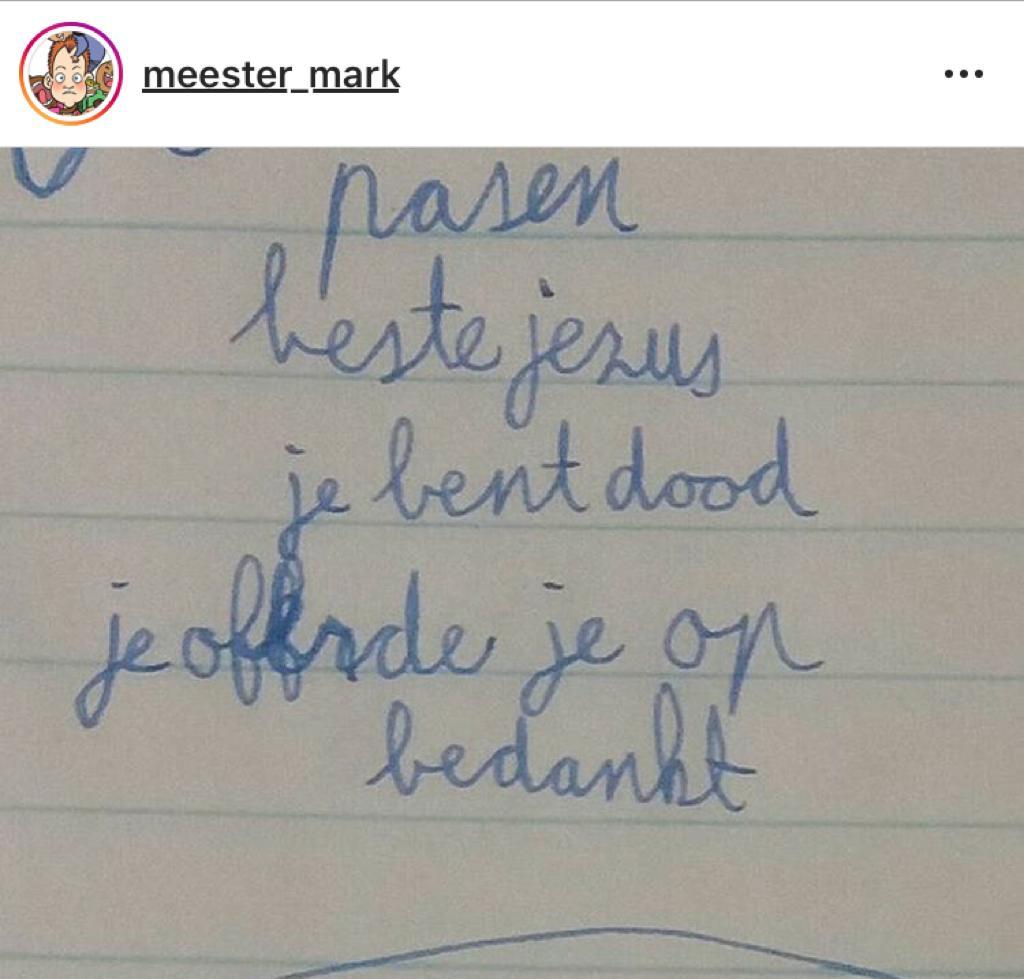 meester_mark
pasen
beste jezus
je bent dood
je offerde je op
bedankt